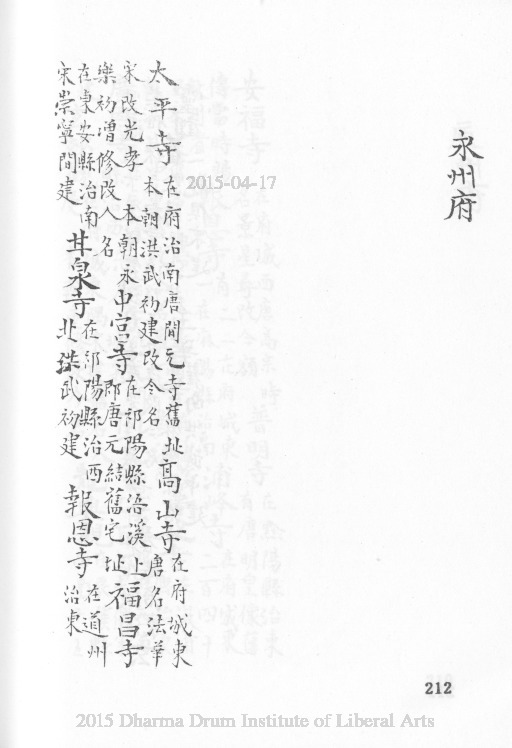 永州府
太平寺
在府治南唐開元寺舊址
本朝洪武初建改今名
高山寺
在府城東
唐名法華
宋改光孝本朝永
樂初增修改今名
中宮寺
在祁陽縣浯溪上
即唐元結舊宅址
福昌寺
在東安縣治南
宋崇寧間建
甘泉寺
在祁陽縣治西
北洪武初建
報恩寺
在道州
治東
2015-04-17
212
2015 Dharma Drum Institute of Liberal Arts